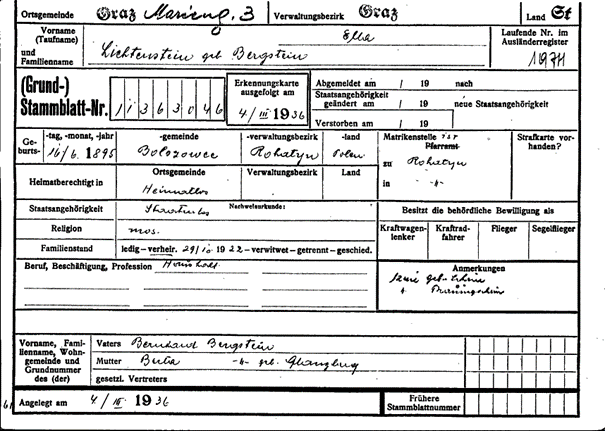 Ortsgemeinde Graz Marieng. 3 Verwaltungsbezirk Graz Land St
Vorname (Taufname) und Familienname
Ella
Lichtenstein geb Bergstein
Laufende Nr. im Ausländerregister
(Grund-) Stammblatt-Nr. 11363046
Erkennungskarte ausgefolgt am
4/III 1936
Abgemeldet am / 19 nach
Staatsangehörigkeit geändert am / 19 neue Staatsangehörigkeit
Verstorben am / 19
Geburts- -tag, -monat, -jahr -gemeinde -verwaltungsbezirk -land
16/6. 1895 Bolszowce Rohatyn Polen
Matrikenstelle isr
Pfarramt
zu Rohatyn
in -"-
Strafkarte vorhanden?
Heimatberechtigt in Ortsgemeinde Verwaltungsbezirk Land
Heimatlos
Staatsangehörigkeit Staatenlos Nachweisurkunde:
Religion mos.
Familienstand ledig – verheir. 1922 – verwitwet – getrennt – geschied.
Besitzt die behördliche Bewilligung als
Kraftwagenlenker Kraftradfahrer Flieger Segelflieger
Beruf, Beschäftigung, Profession Haushalt
Anmerkungen
Vorname, Familienname, Wohngemeinde und Grundnummer des (der)
Vaters Bernhard Bergstein
Mutter Berta -"- geb.
gesetzl. Vertreters
61 Angelegt am 4/III 1936
Frühere Stammblattnummer